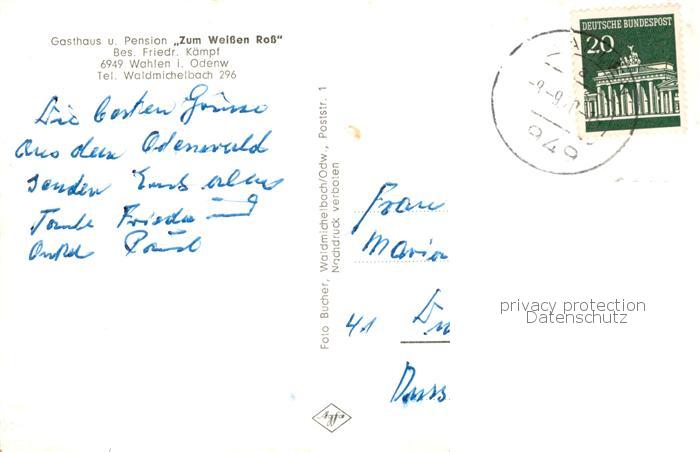 Gasthaus u. Pension „Zum Weißen Roß“
Bes. Friedr. Kämpf
6949 Wahlen i. Odenw
Tel. Waldmichelbach 296
Die besten Grüsse
aus dem Odenwald
senden Euch allen
Tante Frieda
Onkel Paul
Foto Bucher, Waldmichelbach/Odw., Poststr. 1
Nachdruck verboten
Agfa
DEUTSCHE BUNDESPOST
20
949
Frau
Maria
41
Duss
privacy protection
Datenschutz